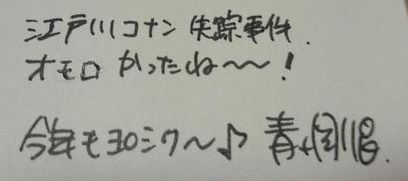 江戸川コナン失踪事件.
オモロかったね〜〜!
今年もヨロシク〜♪ 青山剛昌.